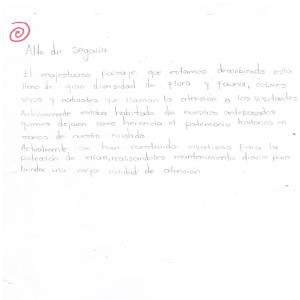 Alto de Segovia
El majestuoso paisaje que estamos describiendo está
lleno de gran diversidad de flora y fauna, colores
vivos y naturales que llaman la atención a los visitantes
Anteriormente estaba habitado de nuestros antepasados
quienes dejaron como herencia el patrimonio histórico en
manos de nuestro cuidado.
Actualmente, se han construido para la
protección de realizandoles mantenimiento diario para
brindar una mejor calidad de atención